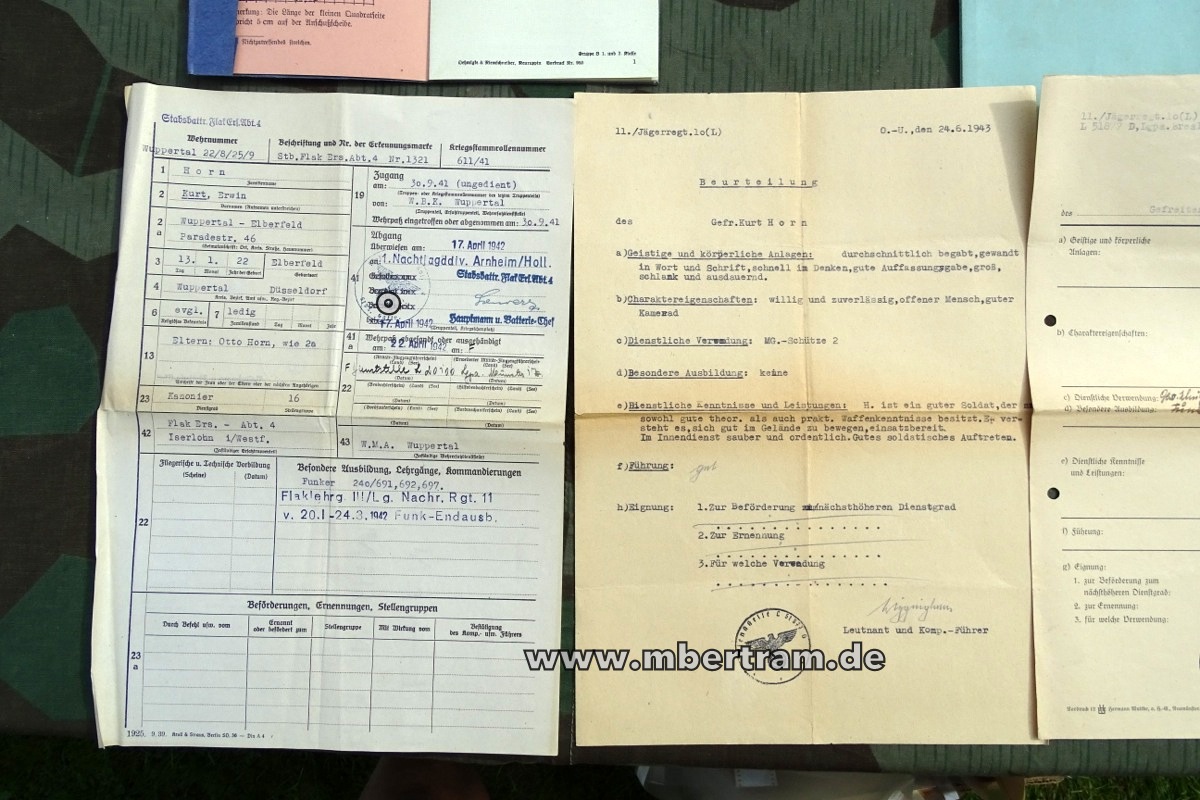 merkung: Die Länge der kleinen Quadratseite
pricht 5 cm auf der Anschußscheibe.
Nichtzutreffendes streichen.
Gruppe B 1. und 2. Klasse
1
Stabsbattr. Flak Ers. Abt. 4
Wehrnummer
Beschriftung und Nr. der Erkennungsmarke
Kriegsstammrollennummer
Wuppertal 22/8/25/9
Stb.Flak Ers.Abt.4 Nr.1321
611/41
1 Horn
Familienname
2 Kurt, Erwin
Vornamen (Rufnamen unterstreichen)
2a Wuppertal - Elberfeld
Paradestr. 46
3 13. 1. 22 Elberfeld
Tag Monat Jahr der Geburt Geburtsort
4 Wuppertal Düsseldorf
6 evgl. 7 ledig
Familienstand Tag Monat Jahr
13 Eltern: Otto Horn, wie 2a
23 Kanonier 16
Dienstgrad Stellengruppe
42 Flak Ers. - Abt. 4
Iserlohn i/Westf.
19 Zugang
am: 30.9.41 (ungedient)
von: W.B.K. Wuppertal
Wehrpaß eingetroffen oder abgenommen am: 30.9.41
41 Abgang
Überwiesen am: 17. April 1942
an 1. Nachtjagddiv. Arnheim/Holl.
Stabsbattr. Flak Ers. Abt. 4
17. April 1942
Hauptmann u. Batterie-Chef
41a Wehrpaß abgesandt oder ausgehändigt
am: 22. April 1942 an: F
22
43 W.M.A. Wuppertal
Fliegerische u. Technische Vorbildung
(Scheine) (Datum)
Besondere Ausbildung, Lehrgänge, Kommandierungen
Funker 240/691,692,697.
Flaklehrg. III/Lg. Nachr. Rgt. 11
v. 20.1-24.3.1942 Funk-Endausb.
22
Beförderungen, Ernennungen, Stellengruppen
Durch Befehl usw. vom
Ernannt oder befördert zum
Stellengruppe
Mit Wirkung vom
Bestätigung des Komp.- usw. Führers
23a
1925. 9.39.
11./Jägerregt.1o(L)
O.-U.,den 24.6.1943
Beurteilung
des Gefr.Kurt Horn
a)Geistige und körperliche Anlagen: durchschnittlich begabt,gewandt
in Wort und Schrift,schnell im Denken,gute Auffassungsgabe,groß,
schlank und ausdauernd.
b)Charaktereigenschaften: willig und zuverlässig,offener Mensch,guter
Kamerad
c)Dienstliche Verwendung: MG.-Schütze 2
d)Besondere Ausbildung: keine
e)Dienstliche Kenntnisse und Leistungen: H. ist ein guter Soldat,der
sowohl gute theor. als auch prakt. Waffenkenntnisse besitzt.Er ver-
steht es,sich gut im Gelände zu bewegen,einsatzbereit.
Im Innendienst sauber und ordentlich.Gutes soldatisches Auftreten.
f)Führung: gut
h)Eignung: 1.Zur Beförderung nächsthöheren Dienstgrad
2.Zur Ernennung
3.Für welche Verwendung
Leutnant und Komp.-Führer
www.mbertram.de
11./Jägerregt.1o(L)
des Gefreiten
a) Geistige und körperliche
Anlagen:
b) Charaktereigenschaften:
c) Dienstliche Verwendung:
d) Besondere Ausbildung:
e) Dienstliche Kenntnisse
und Leistungen:
f) Führung:
g) Eignung:
1. zur Beförderung zum
nächsthöheren Dienstgrad:
2. zur Ernennung:
3. für welche Verwendung: